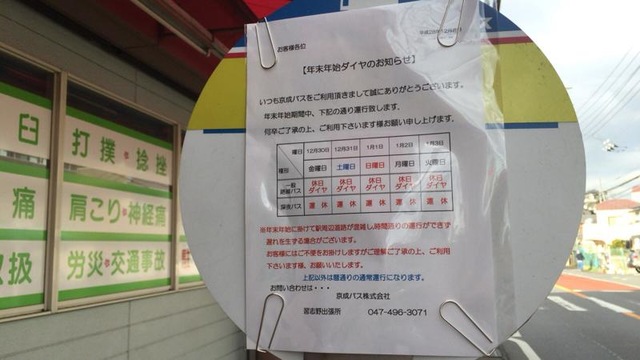 臼 打撲・捻挫
痛 肩こり・神経痛
扱 労災・交通事故
お客様各位
平成28年12月
【年末年始ダイヤのお知らせ】
いつも京成バスをご利用頂きまして誠にありがとうございます。
年末年始期間中、下記の通り運行致します。
何卒ご了承の上、ご利用下さいます様お願い申し上げます。
曜日 12月30日 12月31日 1月1日 1月2日 1月3日
種別 金曜日 土曜日 日曜日 月曜日 火曜日
一般路線バス 休日ダイヤ 休日ダイヤ 休日ダイヤ 休日ダイヤ 休日ダイヤ
深夜バス 運休 運休 運休 運休 運休
※年末年始に掛けて駅周辺道路が混雑し時間通りの運行ができず
遅れを生ずる場合がございます。
お客様にはご不便をお掛けしますがご理解ご了承の上、ご利用
下さいます様、お願いいたします。
上記以外は暦通りの通常運行になります。
お問い合わせは・・・
京成バス株式会社
習志野出張所 047-496-3071